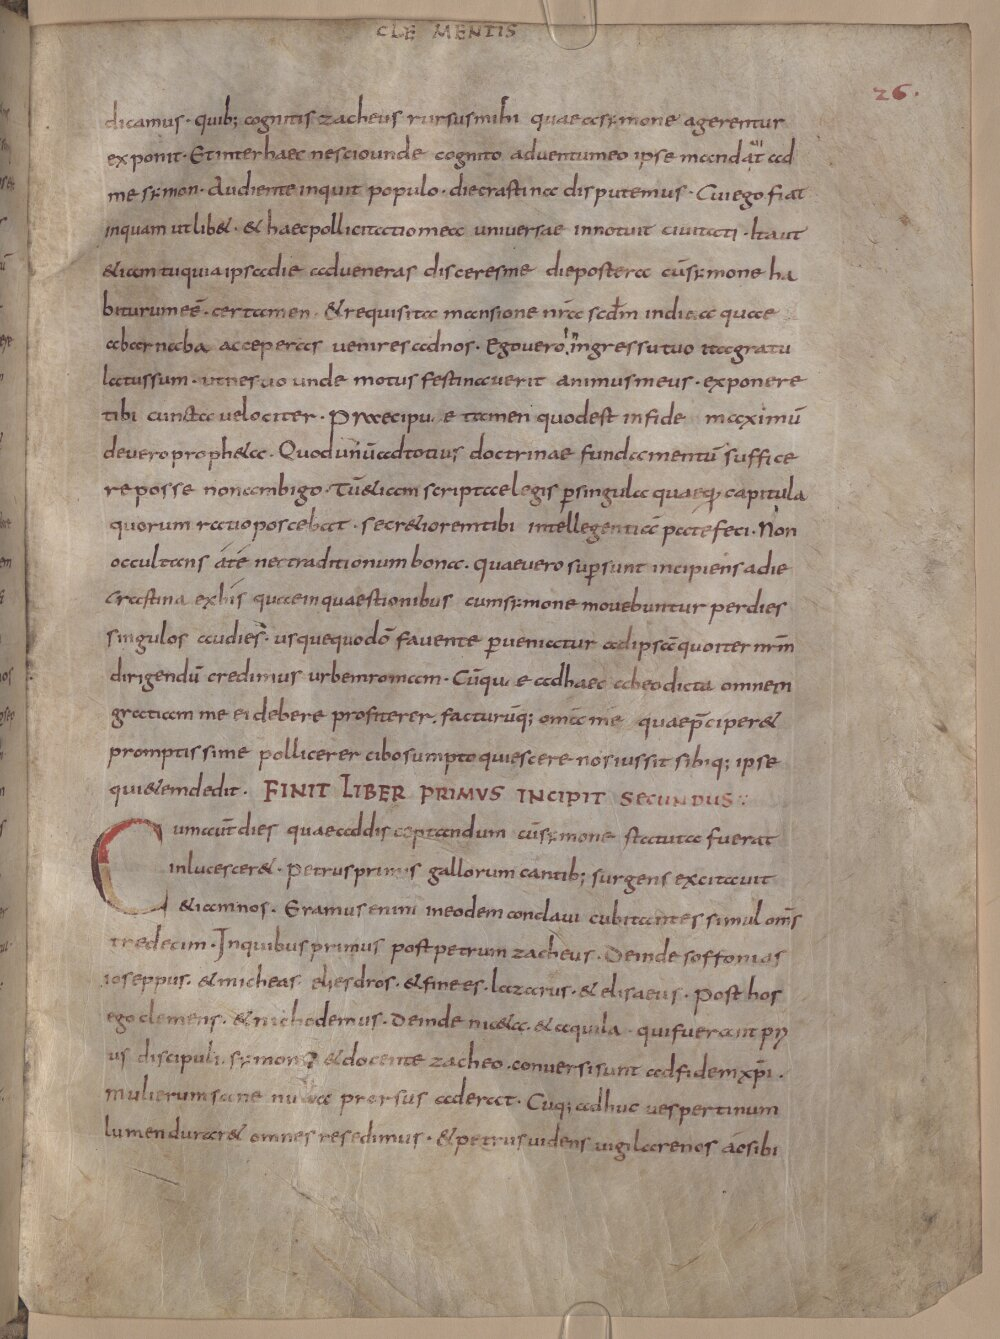 CLEMENTIS
26.
dicamus · quib; cognitis zacheus rursus mihi quae a symone agerentur
exponit · Et inter haec nescio unde cognito adventu meo ipse mandat ad
me symon · Audiente inquit populo · die crastina disputemus · Cui ego fiat
inquam ut lib& · & haec pollicitatio mea universae innotuit civitati · Ita ut
&iam tu quia ipsa die adveneras disceres me die postera cū symone ha
biturum eē · certamen · & requisita mansione nr̄a scdm indicia quae
a barnaba acceperas venires ad nos · Ego vero in ingressu tuo ita gratu
latus sum · ut nescio unde motus festinaverit animus meus · exponere
tibi cuncta velociter · Praecipue tamen quod est in fide maximū
de vero proph&a · Quod unū ad totius doctrinae fundamentū suffice
re posse non ambigo · Tū &iam scriptae legis p singula quaeq; capitula
quorum ratio poscebat · secr&iorem tibi intellegentiā patefeci · Non
occultans a te nec traditionum bona · quae vero supsunt incipiens a die
crastina ex his quae in quaestionibus cum symone movebuntur per dies
singulos audies · usque quo dō favente pveniatur ad ipsā quo iter nrm
dirigendū credimus urbem romam · Cūque ad haec ab eo dicta omnem
gratiam me ei debere profiterer, facturūq; omīa me quae p̄ciper&
promptissime pollicerer cibo sumpto quiescere nos iussit sibiq; ipse
qui&em dedit · FINIT LIBER PRIMVS INCIPIT SECUNDUS
Cum aūt dies quae ad disceptandum cū symone statuta fuerat
inlucescer& · petrus primis gallorum cantib; surgens excitavit
&iam nos · Eramus enim in eodem conclavi cubitantes simul om̄s
tredecim · In quibus primus post petrum zacheus · Deinde soffonias
ioseppus · & micheas eliesdros · & finees · lazarus · & elisaeus · Post hos
ego clemens · & nichodemus · Deinde nic&a · & aquila · qui fuerant pri
us discipuli symonis & docente zacheo · conversi sunt ad fidem xp̄i ·
mulierum sane nulla prorsus aderat · Cūq; adhuc vespertinum
lumen durar& omnes resedimus · & petrus videns vigilare nos ac sibi